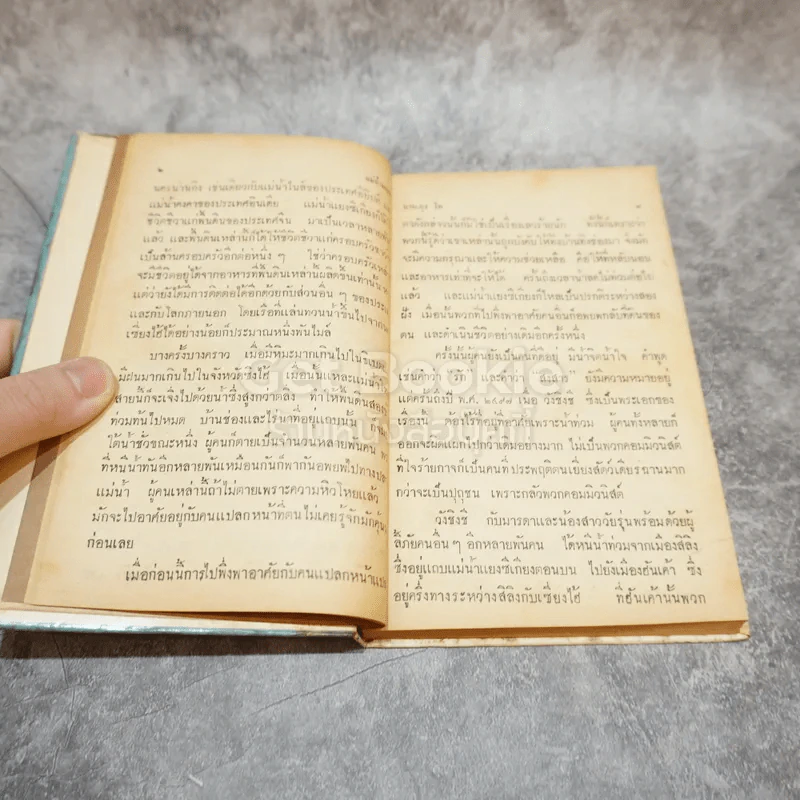 ๒
นครนานกิง เช่นเดียวกับแม่น้ำไนล์ของประเทศอียิปต์
แม่น้ำคงคาของประเทศอินเดีย แม่น้ำแยงซีเกียงก็ให้
ชีวิตชีวาแก่พื้นดินของประเทศจีน มาเป็นเวลาหลาย
แล้ว และพื้นดินเหล่านี้ก็ได้ให้ชีวิตชีวาแก่ครอบครัว
เป็นล้านครอบครัวอีกต่อหนึ่ง ๆ ใช่ว่าครอบครัวเหล่า
จะมีชีวิตอยู่ได้จากอาหารที่พื้นดินเหล่านี้ผลิตขึ้นเท่านั้น
แต่ว่ายังได้มีการติดต่อได้อีกด้วยกับส่วนอื่น ๆ ของประ
และกับโลกภายนอก โดยเรือที่แล่นทวนน้ำขึ้นไปจาก
เซี่ยงไฮ้ได้อย่างน้อยก็ประมาณหนึ่งพันไมล์
บางครั้งบางคราว เมื่อมีหิมะมากเกินไปใน
มีฝนมากเกินไปในจังหวัดซึ่งไฮ้ เมื่อนั้นแหละแม่น้ำ
สายนี้ก็จะเจิ่งไปด้วยน้ำซึ่งสูงกว่าตลิ่ง ทำให้พื้นดินสอง
ท่วมท้นไปหมด บ้านช่องและไร่นาที่อยู่แถบนั้น
ใต้น้ำชั่วขณะหนึ่ง ผู้คนก็ตายเป็นจำนวนหลายพันคน
ที่หนีน้ำทันอีกหลายพันเหมือนกันก็พากันอพยพไปทาง
แม่น้ำ ผู้คนเหล่านี้ถ้าไม่ตายเพราะความหิวโหยแล้ว
มักจะไปอาศัยอยู่กับคนแปลกหน้าที่ตนไม่เคยรู้จักมักคุ้น
ก่อนเลย
เมื่อก่อนนี้การไปพึ่งพาอาศัยกับคนแปลกหน้า
พวกนี้รู้ดีว่าเขาเหล่านั้นถูกบังคับให้ทิ้งบ้านที่ซ่อนมา จึงมัก
จะมีความกรุณาและให้ความช่วยเหลือ คือให้ที่พักหลับนอน
และอาหารเท่าที่จะให้ได้ ครั้นถึงเวลาน้ำลดไม่ท่วมต่อไป
แล้ว และแม่น้ำแยงซีเกียงก็ไหลเป็นปรกติระหว่างสอง
ฝั่ง เมื่อนั้นพวกที่พึ่งพาอาศัยคนอื่นก็อพยพกลับที่ดินของ
ตน และดำเนินชีวิตอย่างเดิมอีกครั้งหนึ่ง
ครั้งนั้นผู้คนยังเป็นคนที่ดีอยู่ มีน้ำจิตน้ำใจ คำพูด
เช่นคำว่า “รัก” และคำว่า “สงสาร” ยังมีความหมายอยู่
แต่ครั้นถึงปี พ.ศ. ๒๔๙๘ เมื่อ วังซิงซี ซึ่งเป็นพระเอกของ
เรื่องนี้ ต้องไร้ที่อยู่ที่อาศัยเพราะน้ำท่วม ผู้คนทั้งหลาย
ก็ออกจะผิดแผกไปกว่าเดิมอย่างมาก ไม่เป็นพวกคอมมิวนิสต์
ที่ใจร้ายกาจก็เป็นคนที่ประพฤติตนเยี่ยงสัตว์เดียรฉานมาก
กว่าจะเป็นปุถุชน เพราะกลัวพวกคอมมิวนิสต์
วังซิงซี กับมารดาและน้องสาววัยรุ่นพร้อมด้วยผู้
ลี้ภัยคนอื่น ๆ อีกหลายพันคน ได้หนีน้ำท่วมจากเมืองสิลิง
ซึ่งอยู่แถบแม่น้ำแยงซีเกียงตอนบน ไปยังเมืองฮันเค้า ซึ่ง
อยู่ครึ่งทางระหว่างสิลิงกับเซี่ยงไฮ้ ที่ฮันเค้านั้นพวก
Get Bookie